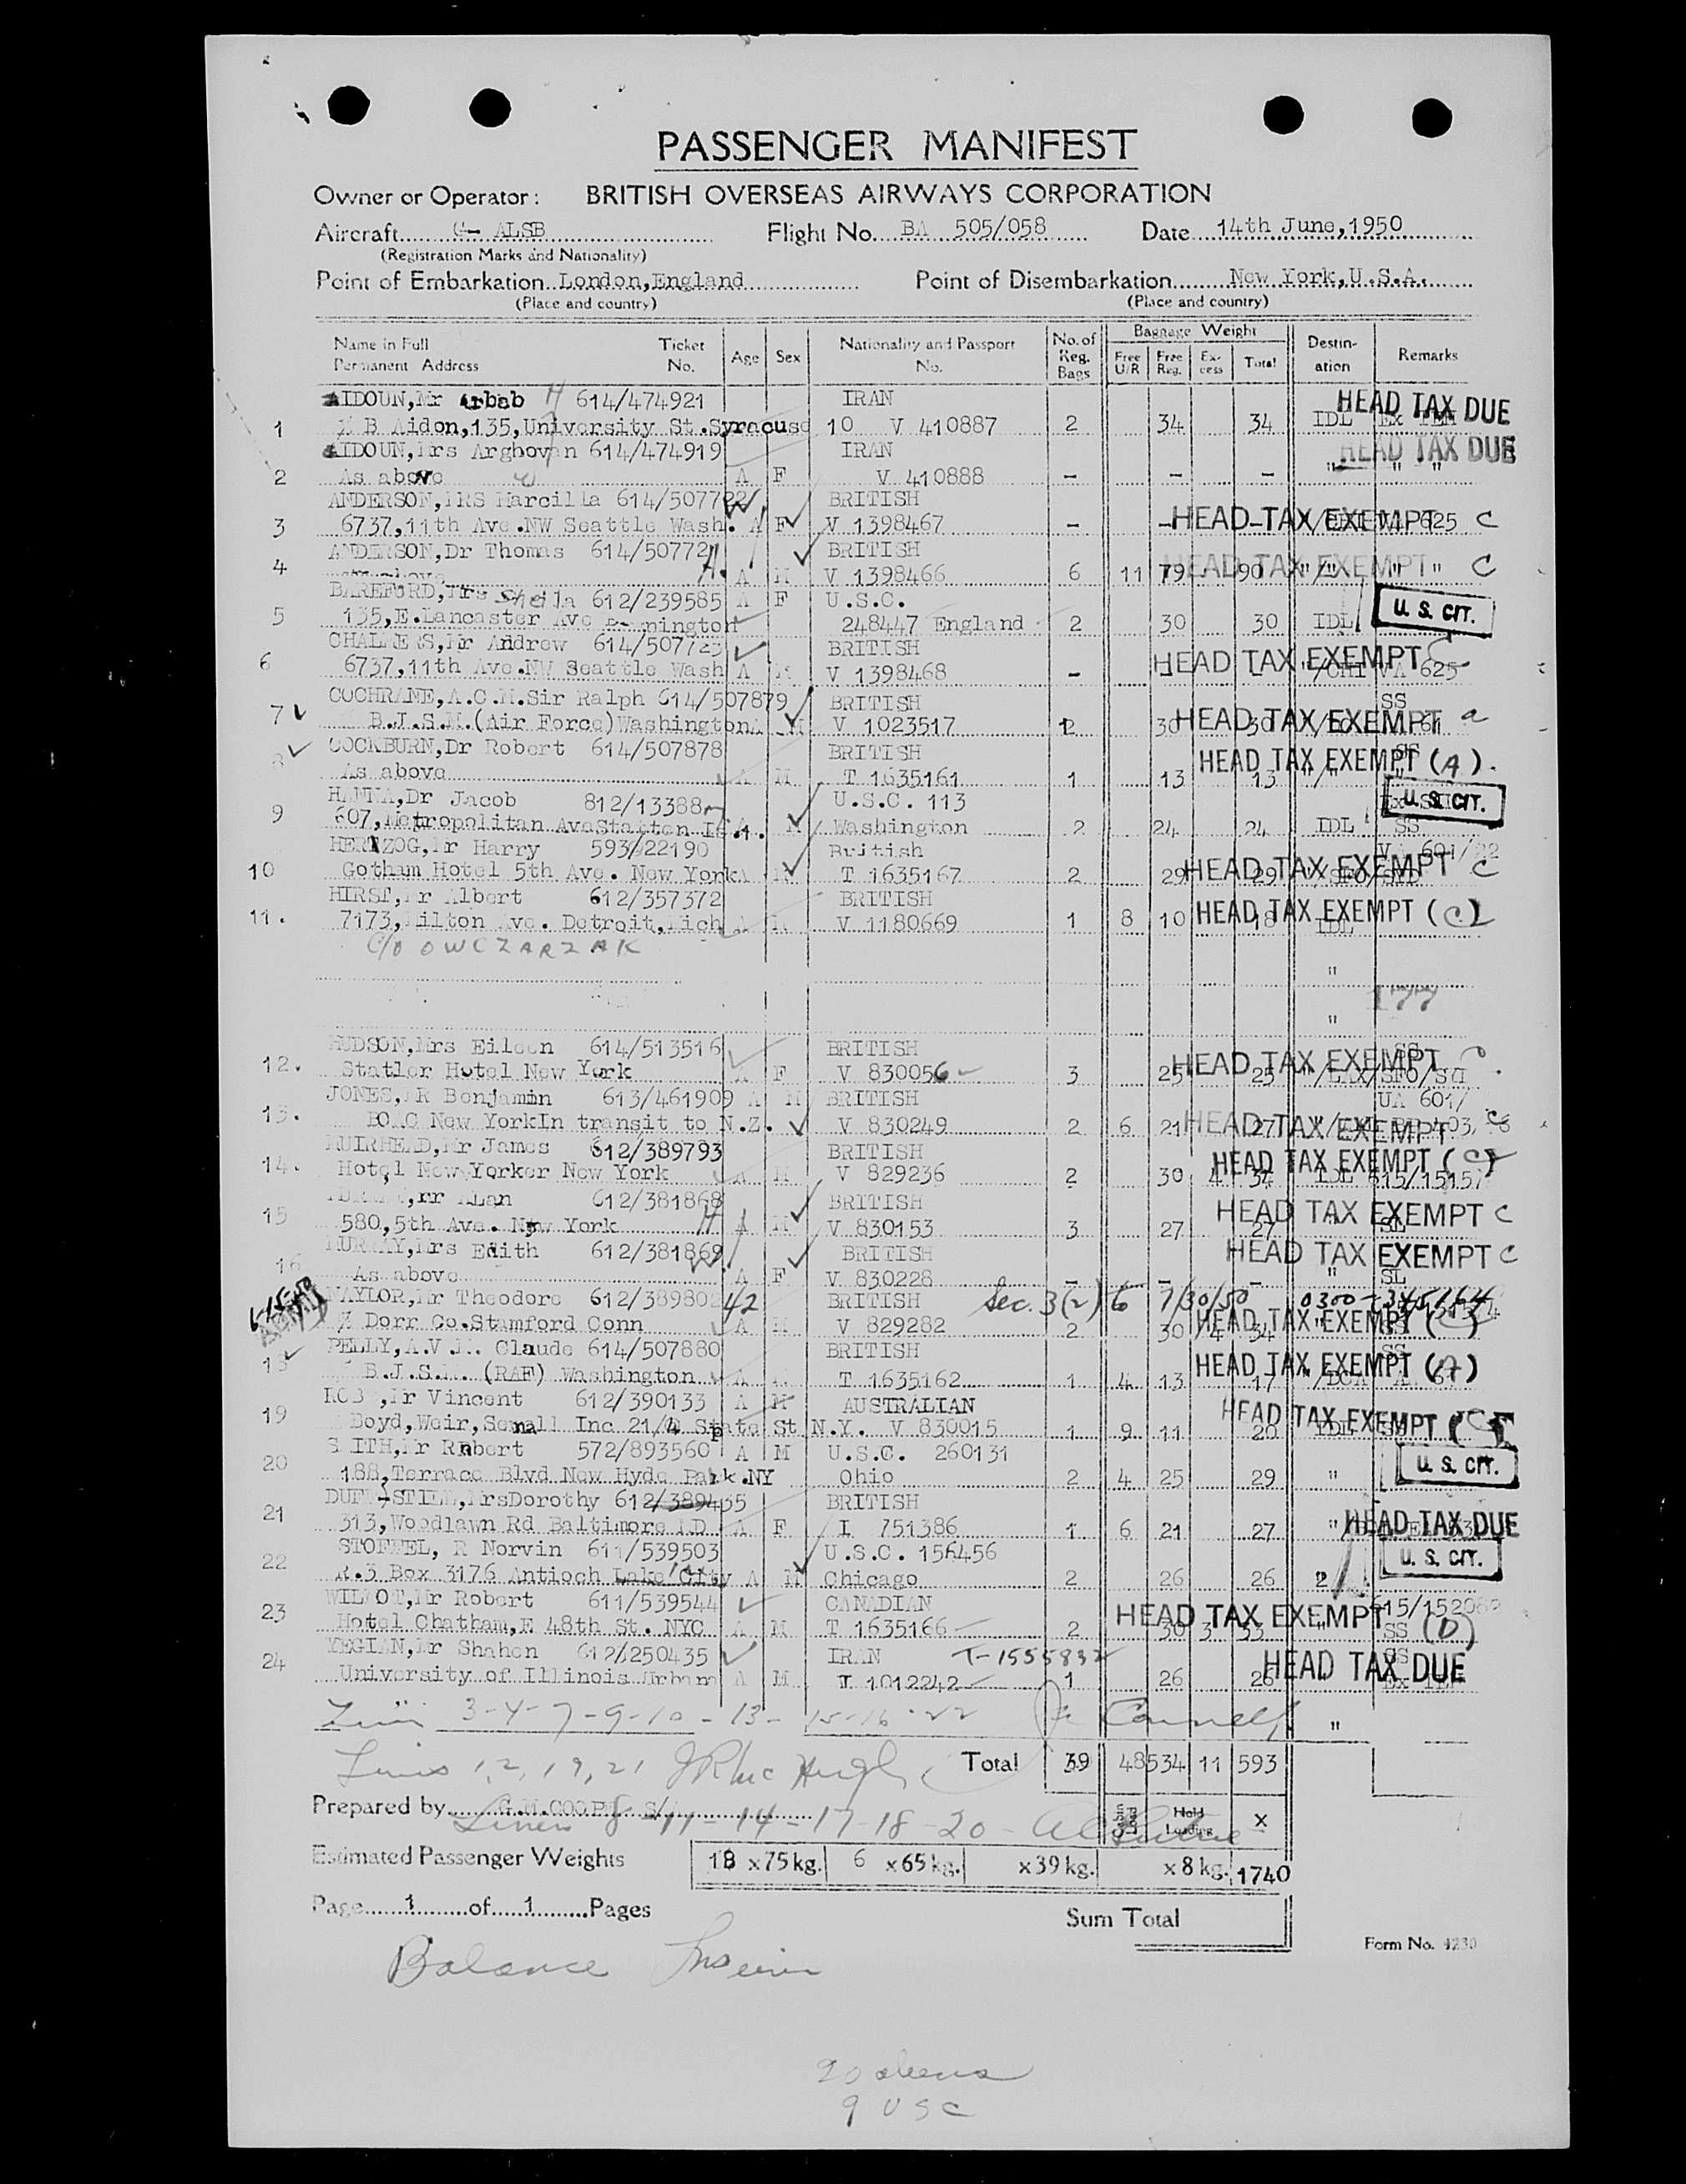 PASSENGER MANIFEST
Owner or Operator: BRITISH OVERSEAS AIRWAYS CORPORATION
Aircraft G- ALSB Flight No. BA 505/058 Date 14th June,1950
(Registration Marks and Nationality)
Point of Embarkation London,England Point of Disembarkation New York,U.S.A.
(Place and country) (Place and country)
Name in Full Ticket Age Sex Nationality and Passport No. of Baggage Weight Destin- Remarks
Permanent Address No. No. Reg. Bags Free U/R Free Reg. Ex- cess Total ation
AIDOUN,Mr Arbab H 614/474921 IRAN HEAD TAX DUE
1 B Aidon,135,University St.Syracuse 10 V 410887 2 34 34 IDL
AIDOUN,Mrs Arghovan 614/474919 IRAN HEAD TAX DUE
2 As above A F V 410888 - - - " " "
ANDERSON,MRS Marcilla 614/507722 BRITISH
3 6737,11th Ave.NW Seattle Wash. A F V 1398467 - - HEAD TAX EXEMPT 625 C
ANDERSON,Dr Thomas 614/50772 BRITISH
4 A M V 1398466 6 11 79 90 HEAD TAX EXEMPT " C
BAREFORD,Mrs Sheila 612/239585 A F U.S.C.
5 135,E.Lancaster Ave 248447 England 2 30 30 IDL U. S. CIT.
CHALMERS,Mr Andrew 614/507723 BRITISH
6 6737,11th Ave.NW Seattle Wash A M V 1398468 - HEAD TAX EXEMPT C VA 625
COCHRANE,A.C.M.Sir Ralph 614/507879 BRITISH SS
7 B.J.S.M.(Air Force)Washington A M V 1023517 2 30 30 HEAD TAX EXEMPT a
COCKBURN,Dr Robert 614/507878 BRITISH SS
8 As above A M T 1635161 1 13 13 HEAD TAX EXEMPT (A).
HANNA,Dr Jacob 812/13388 U.S.C. 113 U. S. CIT.
9 607,Metropolitan Ave Washington 2 24 24 IDL SS
HERTZOG,Mr Harry 593/22190 British
10 Gotham Hotel 5th Ave. New York A M T 1635167 2 29 29 HEAD TAX EXEMPT C
HIRST,Mr Albert 612/357372 BRITISH
11. 7173,Milton Ave. Detroit,Mich A M V 1180669 1 8 10 18 IDL HEAD TAX EXEMPT (C)
C/O OWCZARZAK
"
177
"
HUDSON,Mrs Eileen 614/513516 BRITISH SS
12. Statler Hotel New York A F V 830056 3 25 25 HEAD TAX EXEMPT C
JONES,MR Benjamin 613/461909 A M BRITISH UA 601/
13. BOAC New YorkIn transit to N.Z. V 830249 2 6 21 27 HEAD TAX EXEMPT C
MUIRHEAD,Mr James 612/389793 BRITISH
14. Hotel New Yorker New York A M V 829236 2 30 4 34 IDL HEAD TAX EXEMPT (C)
Alan 612/381868 BRITISH
15 580,5th Ave. New York H A M V 830153 3 27 27 HEAD TAX EXEMPT C
MURRAY,Mrs Edith 612/381869 BRITISH
16 As above A F V 830228 - - - " SL HEAD TAX EXEMPT C
NAYLOR,Mr Theodore 612/389802 42 BRITISH Sec. 3(2) 6 7/30/50 0300-345164
% Dorr Co.Stamford Conn A M V 829282 2 30 4 34 " HEAD TAX EXEMPT (C)
PELLY,A.V.M. Claude 614/507880 BRITISH SS
18 B.J.S.M. (RAF) Washington A M T 1635162 1 4 13 17 HEAD TAX EXEMPT (A)
Vincent 612/390133 A M AUSTRALIAN
19 Boyd,Weir,Sewall Inc 21/4 State St N.Y. V 830015 1 9 11 20 IDL HEAD TAX EXEMPT
SMITH,Mr Robert 572/893560 A M U.S.C. 260131
20 188,Terrace Blvd New Hyde Park.NY Ohio 2 4 25 29 " U. S. CIT.
MrsDorothy 612/389435 BRITISH
21 313,Woodlawn Rd Baltimore MD A F I 751386 1 6 21 27 " HEAD TAX DUE
STOFFEL, R Norvin 611/539503 U.S.C. 156456
22 R.3 Box 3176 Antioch Lake City A M Chicago 2 26 26 2 U. S. CIT.
WILMOT,Mr Robert 611/539544 CANADIAN
23 Hotel Chatham,E 48th St. NYC A M T 1635166 2 30 3 33 " SS HEAD TAX EXEMPT (D)
YEGIAN,Mr Shahen 612/250435 IRAN T-1555832 SS
24 University of Illinois Urbana A M I 1012242 1 26 26 HEAD TAX DUE
3-4-7-9-10-13-15-16-22 "
Lines 1,2,19,21 Total 39 48 534 11 593
Prepared by G.M.COOPER Hold Loading X
Lines 8-11-14-17-18-20-
Estimated Passenger Weights 18 x75kg. 6 x65kg. x39kg. x8kg. 1740
Page 1 of 1 Pages Sum Total
Form No. 4230
Balance
20 aliens
9 USC